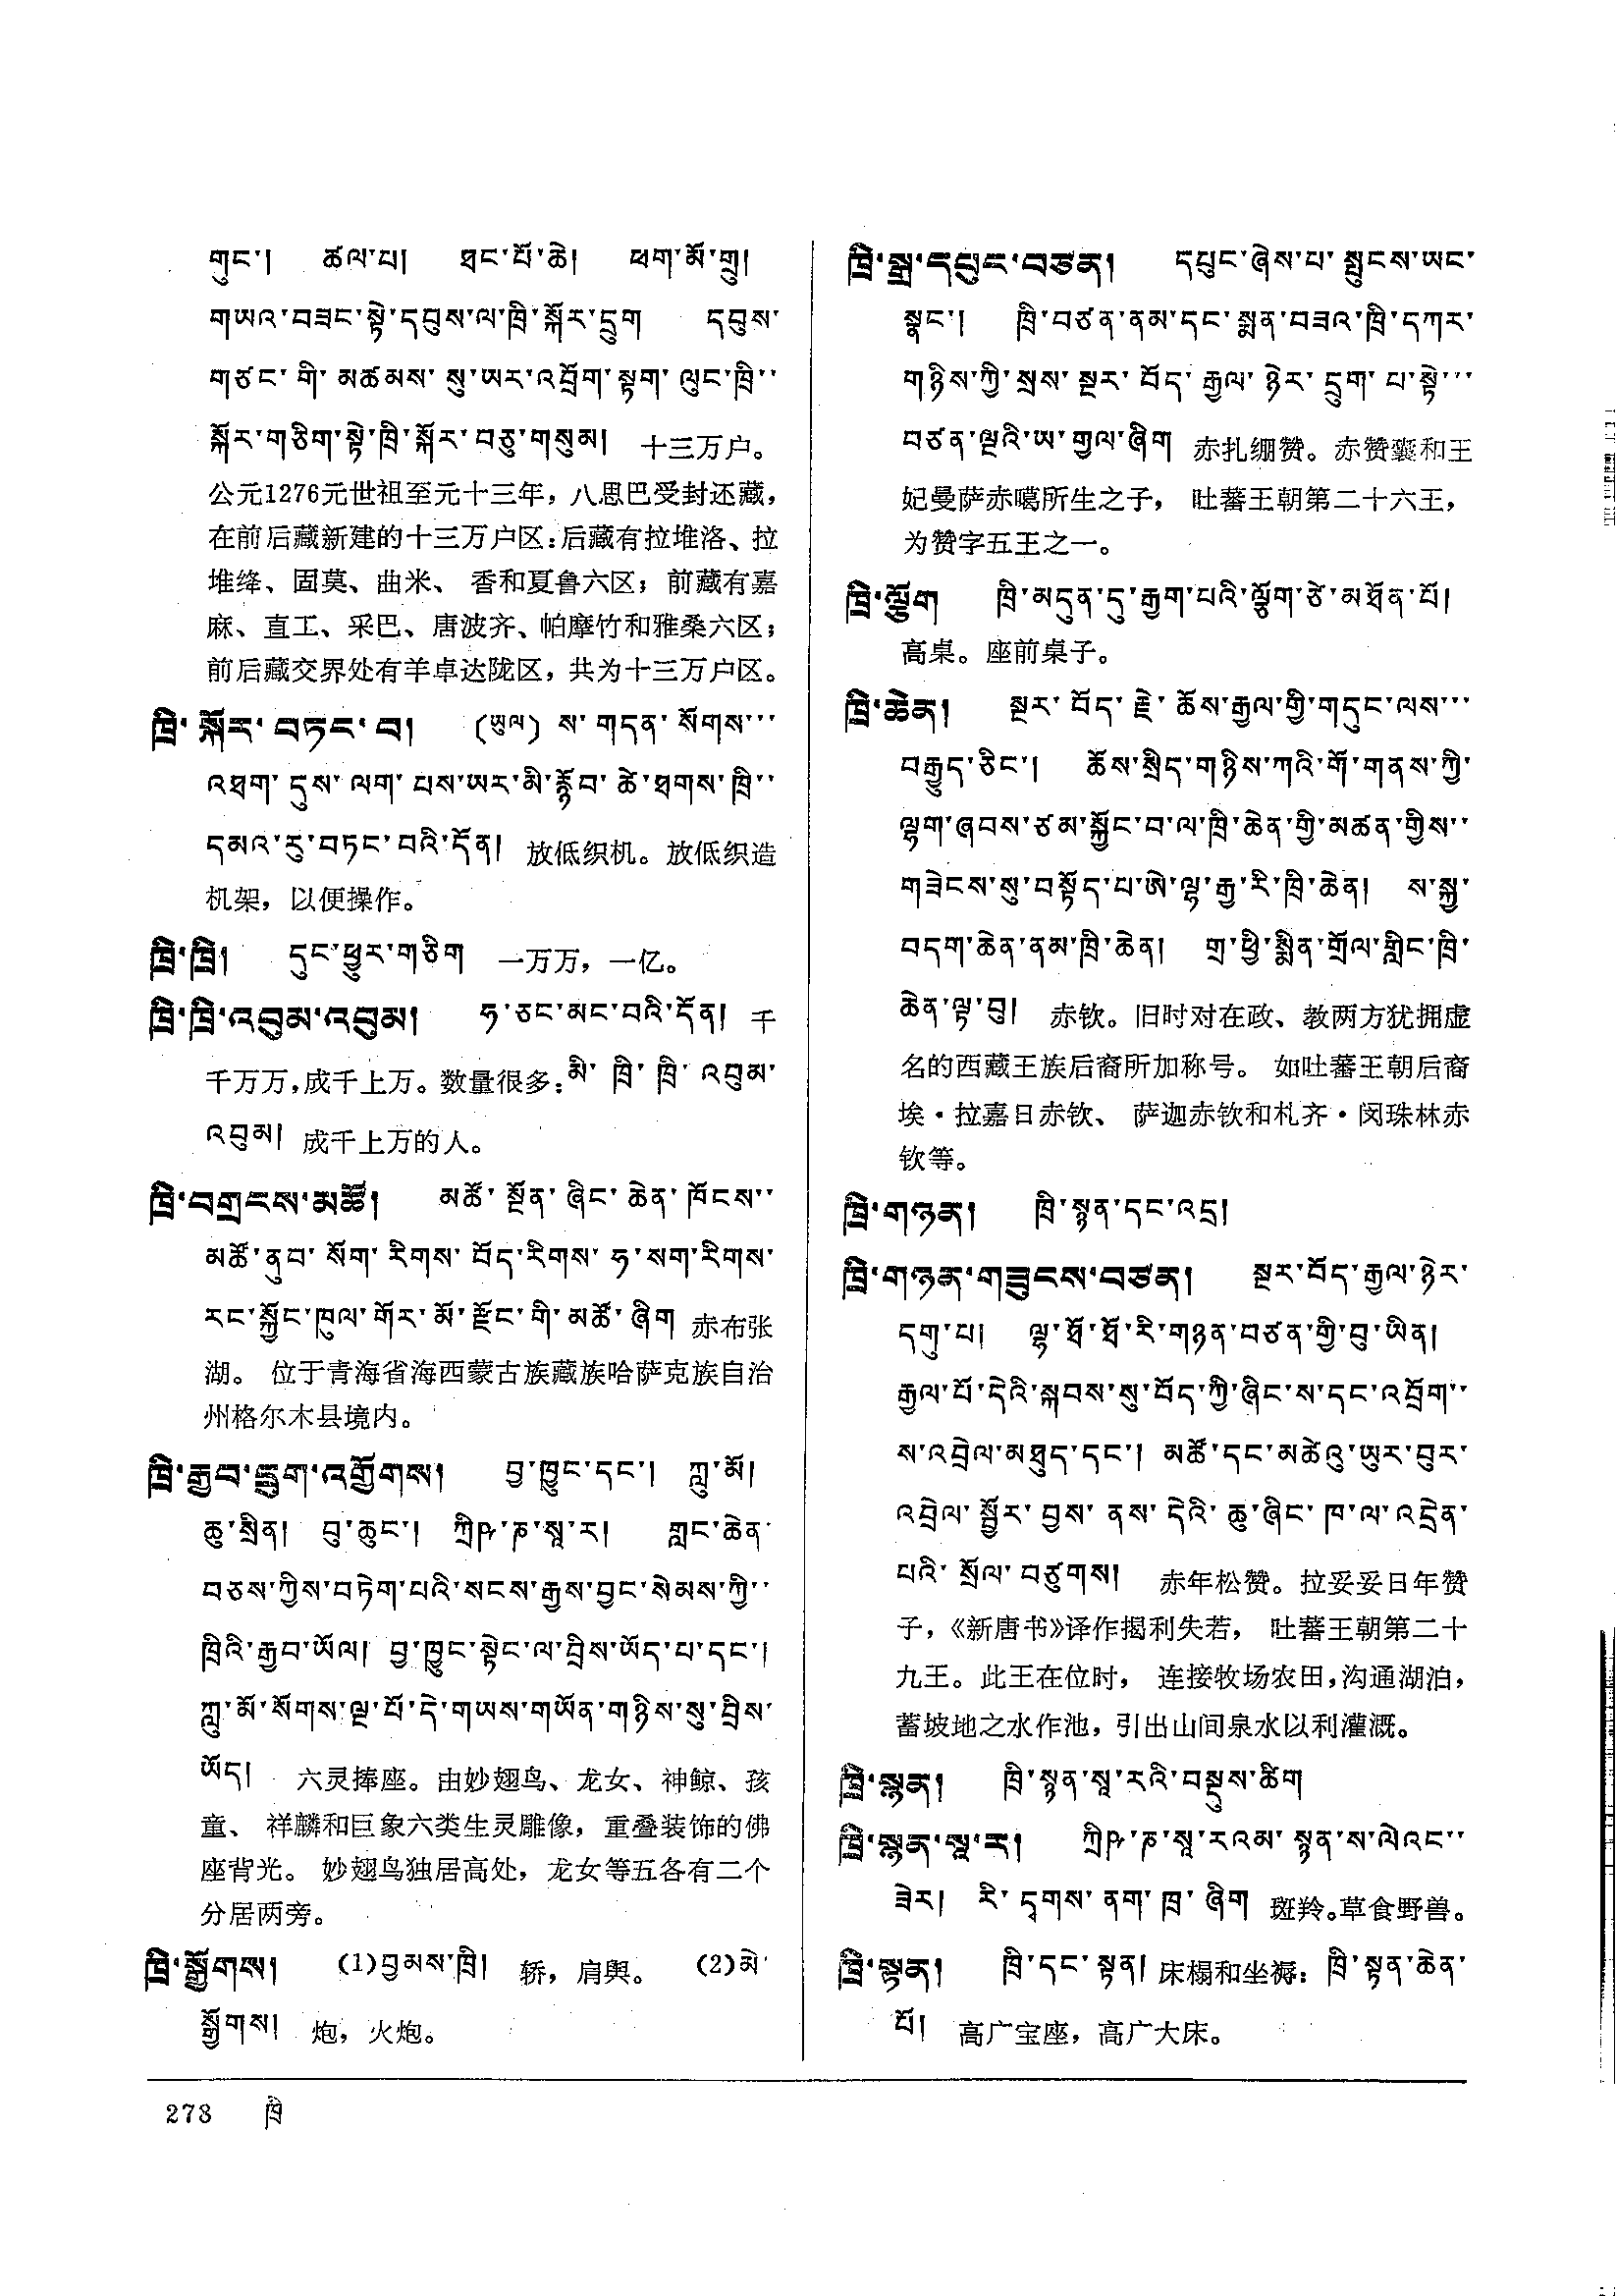 གུང་། ཚལ་པ། ཐང་པོ་ཆེ། ཕག་མོ་གྲུ།
གཡའ་བཟང་སྟེ་དབུས་ལ་ཁྲི་སྐོར་དྲུག དབུས་
གཙང་གི་མཚམས་སུ་ཡར་འབྲོག་སྟག་ལུང་ཁྲི་
སྐོར་གཅིག་སྟེ་ཁྲི་སྐོར་བཅུ་གསུམ། 十三万户。
公元1276元世祖至元十三年，八思巴受封还藏，
在前后藏新建的十三万户区：后藏有拉堆洛、拉
堆绛、固莫、曲米、香和夏鲁六区；前藏有嘉
麻、直工、采巴、唐波齐、帕摩竹和雅桑六区；
前后藏交界处有羊卓达陇区，共为十三万户区。
ཁྲི་སྐོར་བཏང་བ། (ཡུལ) ས་གདན་སོགས་
འཐག་དུས་ལག་པས་ཡར་མི་རྙོབ་ཚེ་ཐགས་ཁྲི་
དམའ་རུ་བཏང་བའི་དོན། 放低织机。放低织造
机架，以便操作。
ཁྲི་ཁྲི། དུང་ཕྱུར་གཅིག 一万万，一亿。
ཁྲི་ཁྲི་འབུམ་འབུམ། ཧ་ཅང་མང་བའི་དོན། 千
千万万，成千上万。数量很多：མི་ཁྲི་ཁྲི་འབུམ་
འབུམ། 成千上万的人。
ཁྲི་བགྲངས་མཚོ། མཚོ་སྔོན་ཞིང་ཆེན་ཁོངས་
མཚོ་ནུབ་སོག་རིགས་བོད་རིགས་ཧ་སག་རིགས་
རང་སྐྱོང་ཁུལ་གོར་མོ་རྫོང་གི་མཚོ་ཞིག 赤布张
湖。位于青海省海西蒙古族藏族哈萨克族自治
州格尔木县境内。
ཁྲི་རྒྱབ་དྲུག་འགྱོགས། བྱ་ཁྱུང་དང་། ཀླུ་མོ།
ཆུ་སྲིན། བུ་ཆུང་། ཀྲིཥྞ་སཱ་ར། གླང་ཆེན་
བཅས་ཀྱིས་བཏེག་པའི་སངས་རྒྱས་བྱང་སེམས་ཀྱི་
ཁྲིའི་རྒྱབ་ཡོལ། བྱ་ཁྱུང་སྟེང་ལ་བྲིས་ཡོད་པ་དང་།
ཀླུ་མོ་སོགས་ལྔ་པོ་དེ་གཡས་གཡོན་གཉིས་སུ་བྲིས་
ཡོད། 六灵捧座。由妙翅鸟、龙女、神鲸、孩
童、祥麟和巨象六类生灵雕像，重叠装饰的佛
座背光。妙翅鸟独居高处，龙女等五各有二个
分居两旁。
ཁྲི་སྒྱོགས། (1)བྱམས་ཁྲི། 轿，肩舆。 (2)མེ་
སྒྱོགས། 炮，火炮。
ཁྲི་སྒྲ་དཔུང་བཙན། དཔུང་ཞེས་པ་སྤུངས་ཡང་
སྣང་། ཁྲི་བཙན་ནམ་དང་སྨན་བཟའ་ཁྲི་དཀར་
གཉིས་ཀྱི་སྲས་སྔར་བོད་རྒྱལ་ཉེར་དྲུག་པ་སྟེ་
བཙན་ལྔའི་ཡ་གྱལ་ཞིག 赤扎绷赞。赤赞囊和王
妃曼萨赤噶所生之子，吐蕃王朝第二十六王，
为赞字五王之一。
ཁྲི་ལྕོག ཁྲི་མདུན་དུ་རྒྱག་པའི་ལྕོག་ཙེ་མཐོན་པོ།
高桌。座前桌子。
ཁྲི་ཆེན། སྔར་བོད་རྗེ་ཆོས་རྒྱལ་གྱི་གདུང་ལས་
བརྒྱུད་ཅིང་། ཆོས་སྲིད་གཉིས་ཀའི་གོ་གནས་ཀྱི་
ལྷག་ཞབས་ཙམ་སྐྱོང་བ་ལ་ཁྲི་ཆེན་གྱི་མཚན་གྱིས་
གཟེངས་སུ་བསྟོད་པ་ཨེ་ལྷ་རྒྱ་རི་ཁྲི་ཆེན། ས་སྐྱ་
བདག་ཆེན་ནམ་ཁྲི་ཆེན། གྲ་ཕྱི་སྨིན་གྲོལ་གླིང་ཁྲི་
ཆེན་ལྟ་བུ། 赤钦。旧时对在政、教两方犹拥虚
名的西藏王族后裔所加称号。如吐蕃王朝后裔
埃·拉嘉日赤钦、萨迦赤钦和札齐·闵珠林赤
钦等。
ཁྲི་གཉན། ཁྲི་སྙན་དང་འདྲ།
ཁྲི་གཉན་གཟུངས་བཙན། སྔར་བོད་རྒྱལ་ཉེར་
དགུ་པ། ལྷ་ཐོ་ཐོ་རི་གཉན་བཙན་གྱི་བུ་ཡིན།
རྒྱལ་པོ་དེའི་སྐབས་སུ་བོད་ཀྱི་ཞིང་ས་དང་འབྲོག་
ས་འབྲེལ་མཐུད་དང་། མཚོ་དང་མཚེའུ་ཡུར་བུར་
འབྲེལ་སྦྱོར་བྱས་ནས་དེའི་ཆུ་ཞིང་ཁ་ལ་འདྲེན་
པའི་སྲོལ་བཙུགས། 赤年松赞。拉妥妥日年赞
子，《新唐书》译作揭利失若，吐蕃王朝第二十
九王。此王在位时，连接牧场农田，沟通湖泊，
蓄坡地之水作池，引出山间泉水以利灌溉。
ཁྲི་སྙན། ཁྲི་སྙན་སཱ་རའི་བསྡུས་ཚིག
ཁྲི་སྙན་སཱ་ར། ཀྲིཥྞ་སཱ་རའམ་སྙན་ས་ལེའང་
ཟེར། རི་དྭགས་ནག་ཁྲ་ཞིག 斑羚。草食野兽。
ཁྲི་སྟན། ཁྲི་དང་སྟན། 床榻和坐褥：ཁྲི་སྟན་ཆེན་
པོ། 高广宝座，高广大床。
278 ཁྲི